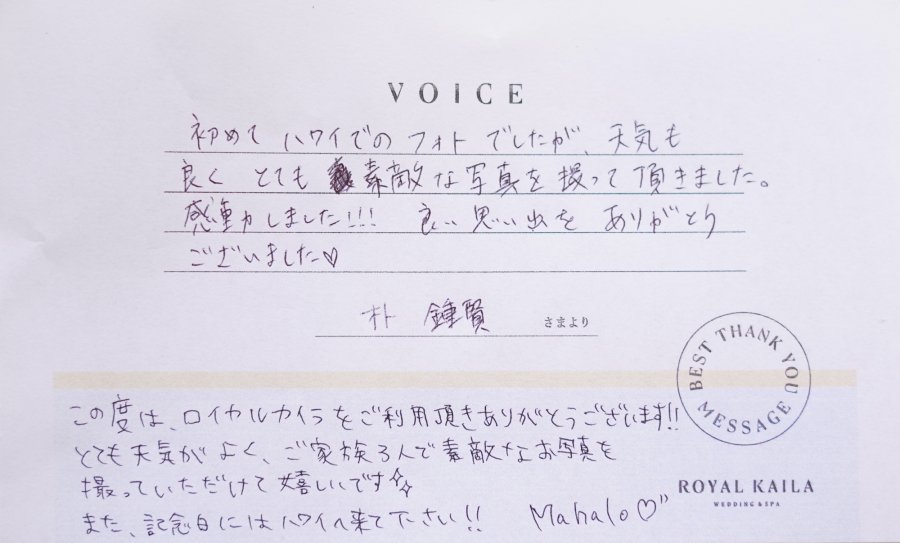 VOICE
初めて ハワイでの フォト でしたが、天気も
良く とても 素敵な写真を撮って頂きました。
感動しました!!! 良い思い出を ありがとう
ございました♡
朴 鍾賢 さまより
BEST THANK YOU MESSAGE
この度は、ロイヤルカイラをご利用頂きありがとうございます!!
とても天気がよく、ご家族3人で素敵なお写真を
撮っていただけて嬉しいです✨
また、記念日にはハワイへ来て下さい!! Mahalo♡"
ROYAL KAILA
WEDDING & SPA